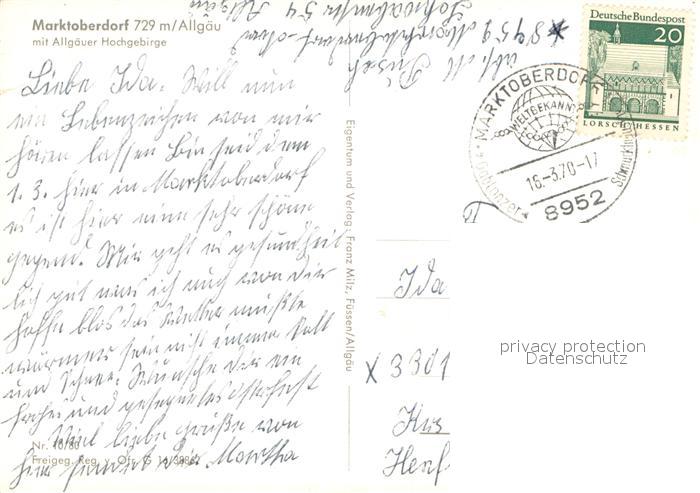 Marktoberdorf 729 m/Allgäu
mit Allgäuer Hochgebirge
Liebe Ida. Will nun
ein Lebenzeichen von mir
hören lassen Bin seid dem
1. 3. hier in Marktoberdorf
es ist hier eine sehr schöne
gegend. Mir geht es gesundheit
lich gut was ich auch von dir
hoffe blos das Wetter müßte
wärmer sein nicht immer kalt
und Schnee. Wünsche dir ein
frohes und gesegnetes Osterfest
Viel liebe grüße von
hier sendet die Martha
Nr. 10/80
Freigeg. Reg. v. Ofr. G
Eigentum und Verlag: Franz Milz, Füssen/Allgäu
Abs. M
8951 Marktoberdorf
54 Allgäu
Deutsche Bundespost
20
LORSCH/HESSEN
MARKTOBERDORF
WELTBEKANNT
16.-3.70-17
8952
Ida
X 3301
privacy protection
Datenschutz